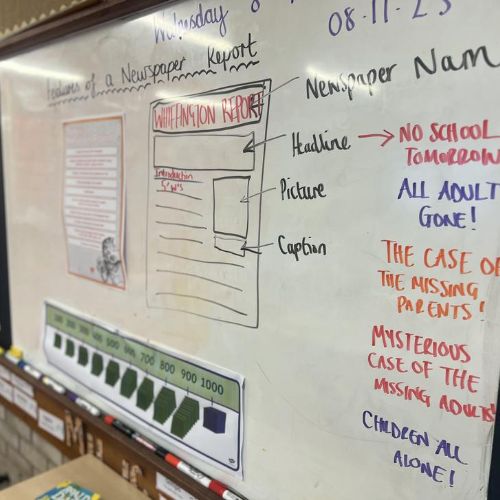 Wednesday
08-11-23
Features of a Newspaper Report
WHIFFINGTON REPORT
Introduction
5 W's
Newspaper Nam
Headline
Picture
Caption
NO SCHOOL
TOMORROW
ALL ADULT
GONE!
THE CASE OF
THE MISSING
PARENTS!
MYSTERIOUS
CASE OF THE
MISSING ADULTS
CHILDREN ALL
ALONE!
100 200 300 400 500 600 700 800 900 1000